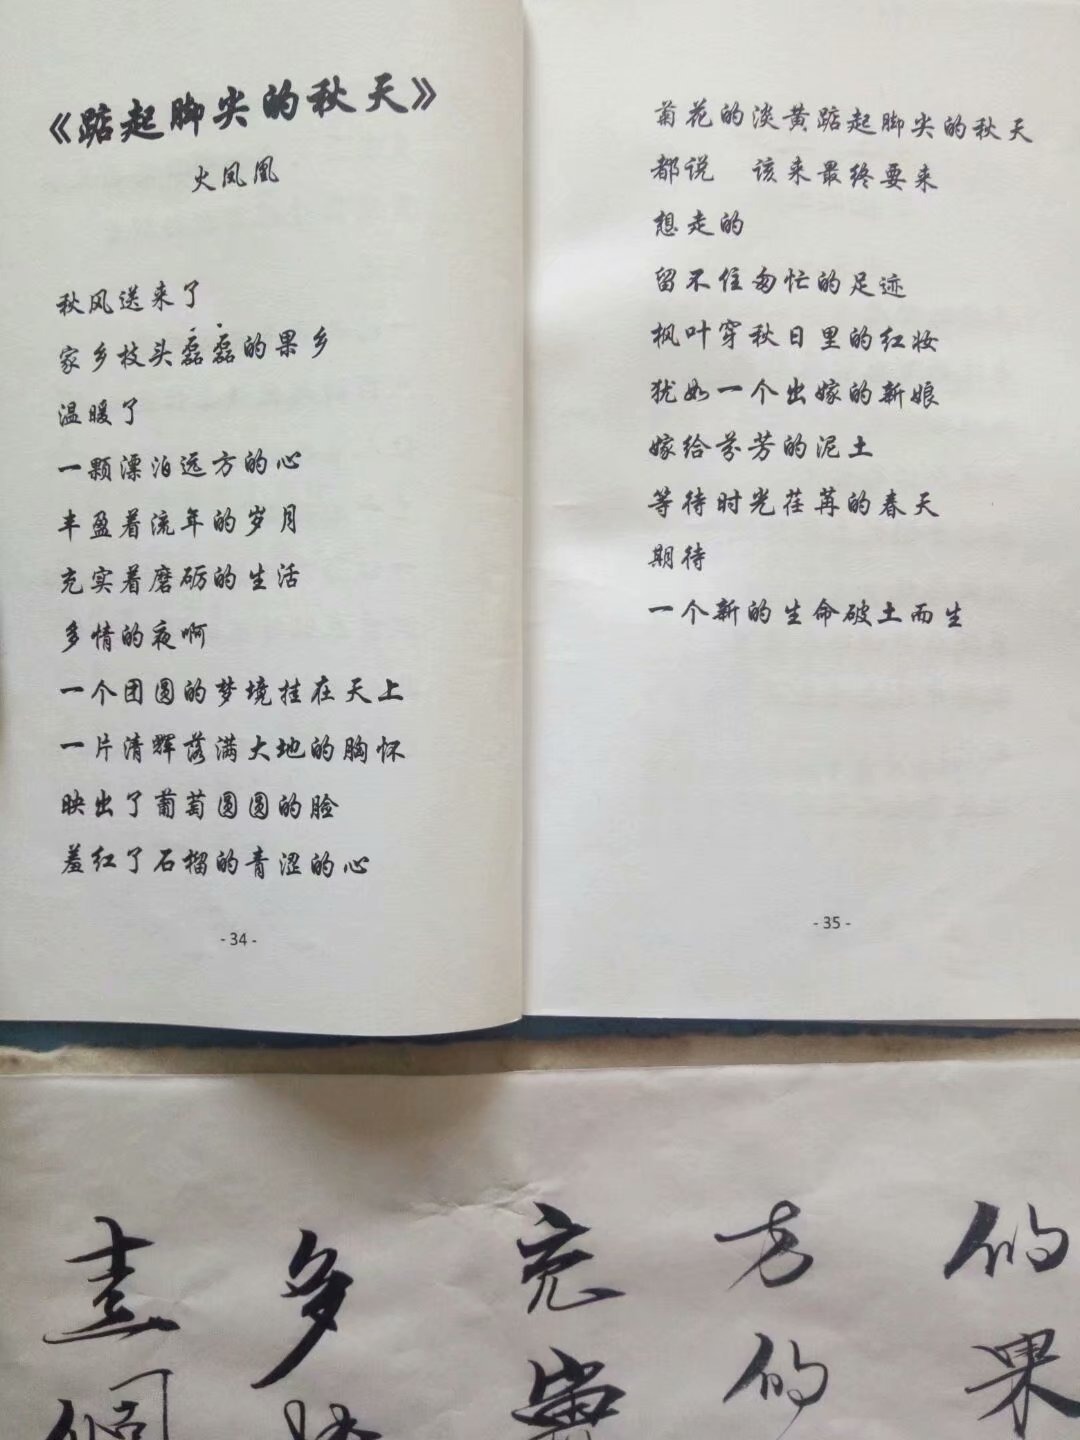 《踮起脚尖的秋天》
火凤凰
秋风送来了
家乡枝头磊磊的果乡
温暖了
一颗漂泊远方的心
丰盈着流年的岁月
充实着磨砺的生活
多情的夜啊
一个团圆的梦境挂在天上
一片清辉落满大地的胸怀
映出了葡萄圆圆的脸
羞红了石榴的青涩的心
- 34 -
菊花的淡黄踮起脚尖的秋天
都说　该来最终要来
想走的
留不住匆忙的足迹
枫叶穿秋日里的红妆
犹如一个出嫁的新娘
嫁给芬芳的泥土
等待时光荏苒的春天
期待
一个新的生命破土而生
- 35 -
的果
方的
充实
多